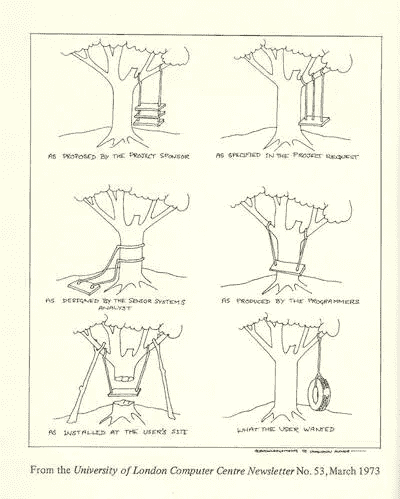 AS PROPOSED BY THE PROJECT SPONSOR
AS SPECIFIED IN THE PROJECT REQUEST
AS DESIGNED BY THE SENIOR SYSTEMS
ANALYST
AS PRODUCED BY THE PROGRAMMERS
AS INSTALLED AT THE USER'S SITE
WHAT THE USER WANTED
From the University of London Computer Centre Newsletter No. 53, March 1973